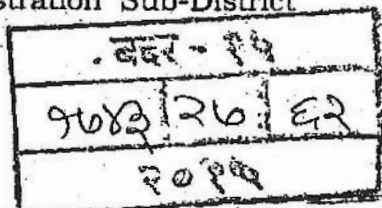 stration Sub-District
. बदर - १५
१७४३ | २७ | ६२
२०१५